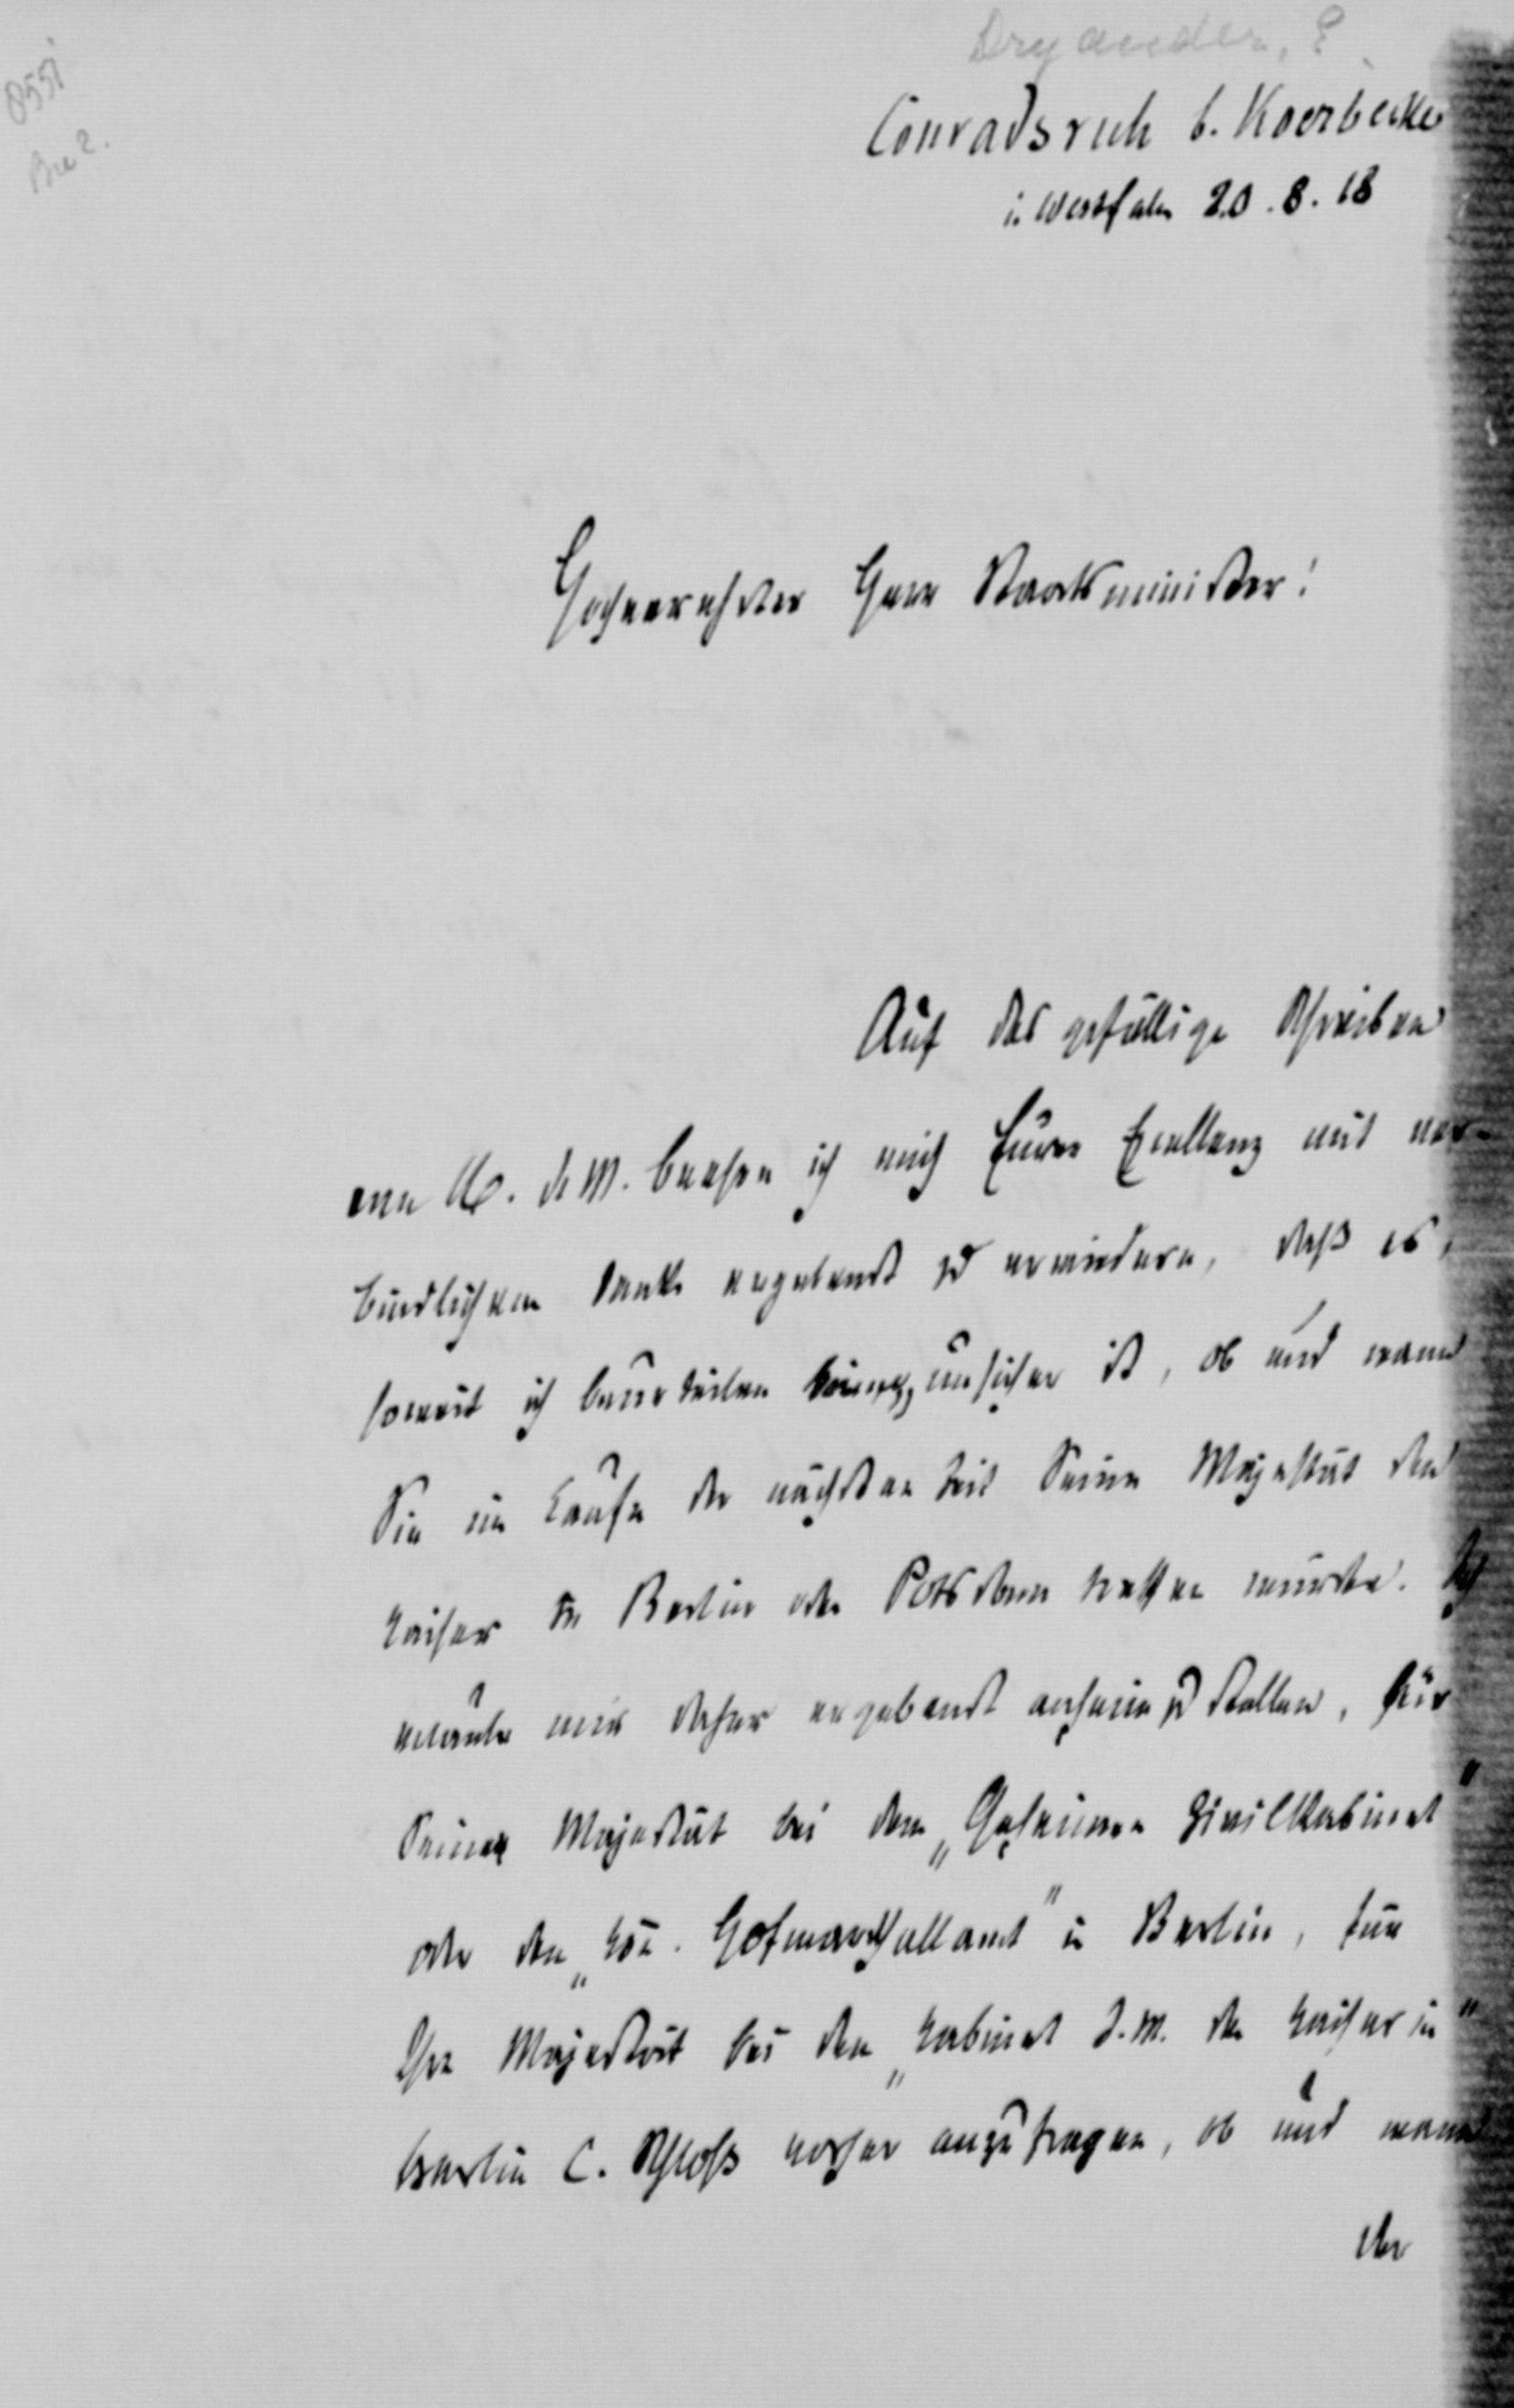 Dryander, E
8551
Conradsruh b. Koerbecke
i. Westfalen 20.8.18
Hochverehrter Herr Staatsminister!
Auf das gefällige Schreiben
vom 16. d. M. beehre ich mich Eurer Excellenz mit ver-
bindlichem Danke ergebenst zu erwiedern, daß es,
soweit ich beurteilen kann, unsicher ist, ob und wann
Sie im Laufe der nächsten Zeit Seine Majestät den
Kaiser in Berlin oder Potsdam treffen würden. Ich
erlaube mir daher ergebenst anheim zu stellen, für
Seine Majestät bei dem „Geheimen Zivilkabinet"
oder dem „Hofmarschallamt" in Berlin, für
Ihre Majestät bei dem „Kabinet I. M. der Kaiserin"
Berlin C. Schloß vorher anzufragen, ob und wann
der